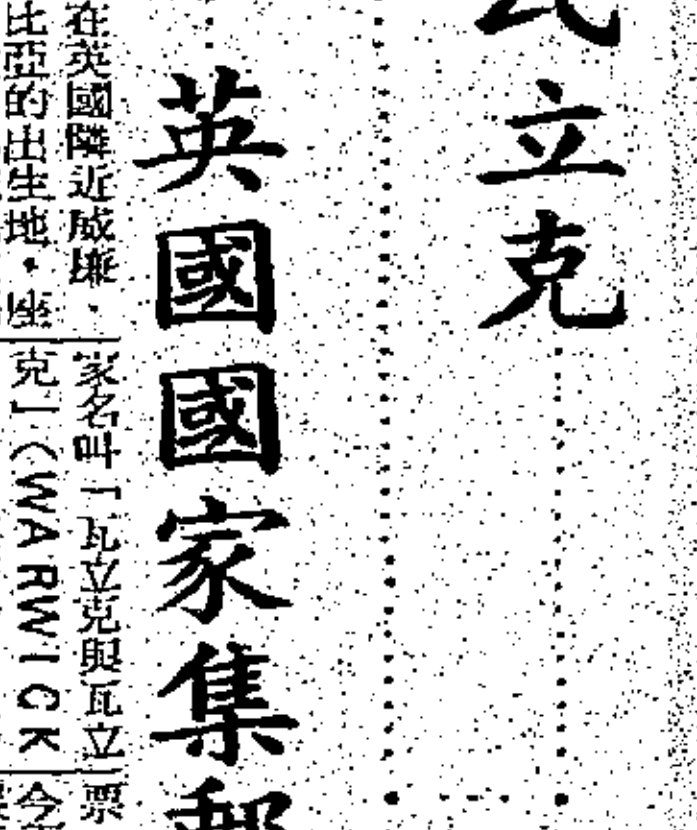 立克
英國國家集郵
在英國隣近威廉・
比亞的出生地・座
家名叫「瓦立克與瓦立
克」(WARWICK
票
今